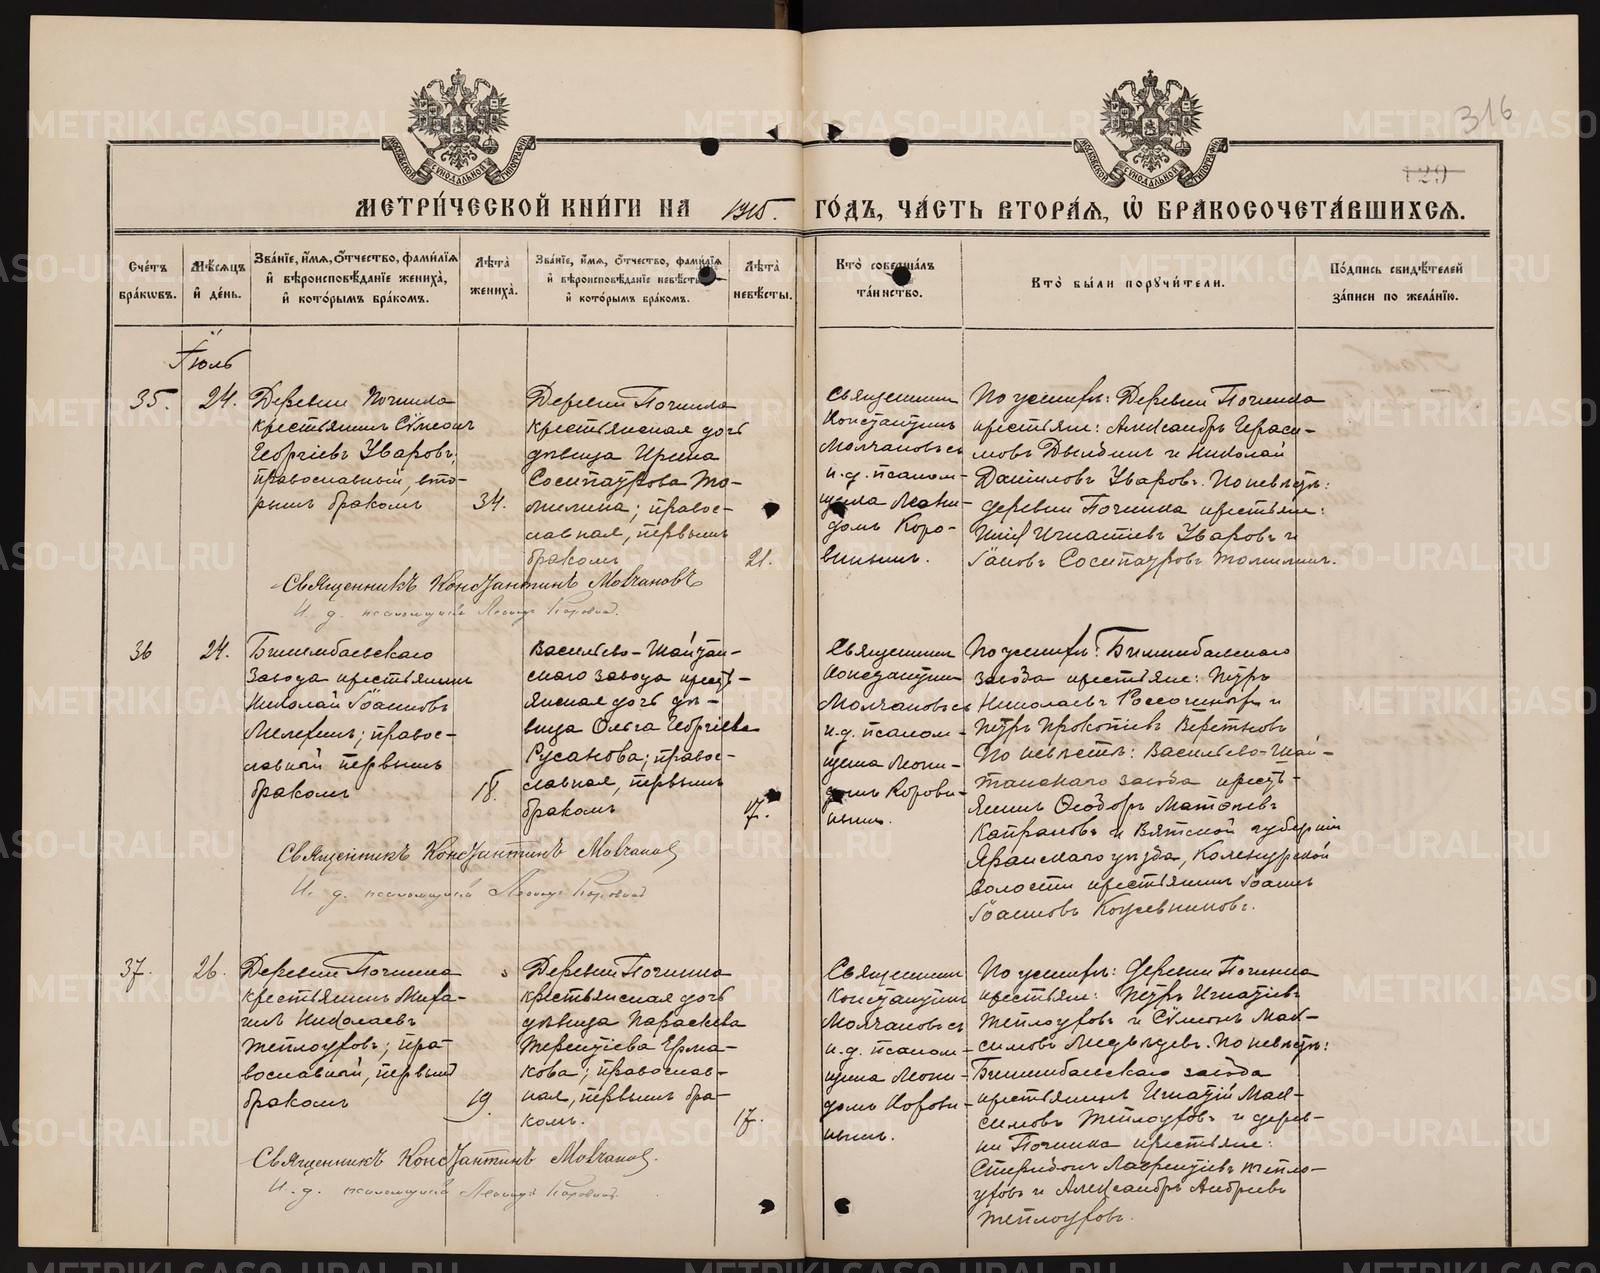 316
129
МЕТРИ́ЧЕСКОЙ КНИ́ГИ НА 1915. ГО́ДЪ, ЧА́СТЬ ВТОРА́Я, Ѡ БРАКОСОЧЕТА́ВШИХСЯ.
Сче́тъ бра́кѡвъ.
Мѣ́сяцъ и҆ де́нь.
Зва́нїе, и҆́мя, ѻ҆́тчество, фами́лїя и҆ вѣроисповѣ́данїе жениха̀, и҆ кото́рымъ бра́комъ.
Лѣ́та жениха̀.
Зва́нїе, и҆́мя, ѻ҆́тчество, фами́лїя и҆ вѣроисповѣ́данїе невѣ́сты и҆ кото́рымъ бра́комъ.
Лѣ́та невѣ́сты.
Кто̀ соверша́лъ та́инство.
Кто̀ бы́ли порꙋчи́тели.
По́дпись свидѣ́телей за́писи по жела́нїю.
Іюль
35.
24.
Деревни Починка
крестьянинъ Сѵмеонъ
Георгіевъ Уваровъ,
православный, вто-
рымъ бракомъ
34.
Деревни Починка
крестьянская дочь
дѣвица Ирина
Сосипатрова То-
милина; право-
славная, первымъ
бракомъ
21.
Священникъ
Константинъ
Молчановъ съ
и.д. псалом-
щика Леони-
домъ Коро-
винымъ.
По женихѣ: Деревни Починка
крестьяне: Александръ Гераси-
мовъ Дылдинъ и Николай
Даниловъ Уваровъ. По невѣстѣ:
деревни Починка крестьяне:
Игнатіевъ Уваровъ и
Іаковъ Сосипатровъ Томилинъ.
Священникъ Константинъ Молчановъ
И. д. псаломщика Леонидъ Коровин
36
24.
Билимбаевскаго
Завода крестьянинъ
Николай Іоанновъ
Мелехинъ; право-
славный первымъ
бракомъ
18.
Васильево-Шайтан-
скаго завода кресть-
янская дочь дѣ-
вица Ольга Георгіева
Русанова; право-
славная, первымъ
бракомъ
17.
Священникъ
Константинъ
Молчановъ съ
и.д. псалом-
щика Леони-
домъ Корови-
нымъ.
По женихѣ: Билимбаевскаго
завода крестьяне: Петръ
Николаевъ и
Петръ Прокопіевъ Веретновъ
По невѣстѣ: Васильево-Шай-
танскаго завода кресть-
янинъ Ѳеодоръ Матѳіевъ
Капраловъ и Вятской губерніи
Яранскаго уѣзда,
волости крестьянинъ Іоаннъ
Іоанновъ Кожевниковъ.
Священникъ Константинъ Молчановъ
И. д. псаломщика Леонидъ Коровин
37.
26.
Деревни Починка
крестьянинъ Миха-
илъ Николаевъ
Теплоуховъ; пра-
вославный, первымъ
бракомъ
19.
Деревни Починка
крестьянская дочь
дѣвица Параскева
Терентіева Ерма-
кова; православ-
ная, первымъ бра-
комъ.
17.
Священникъ
Константинъ
Молчановъ съ
и.д. псалом-
щика Леони-
домъ Корови-
нымъ.
По женихѣ: деревни Починка
крестьяне: Петръ Игнатіевъ
Теплоуховъ и Сѵмеонъ Мак-
симовъ Медвѣдевъ. По невѣстѣ:
Билимбаевскаго завода
крестьянинъ Игнатій Мак-
симовъ Теплоуховъ и дерев-
ни Починка крестьяне:
Спиридонъ Лаврентіевъ Тепло-
уховъ и Александръ Андреевъ
Теплоуховъ.
Священникъ Константинъ Молчановъ.
И. д. псаломщика Леонидъ Коровин
METRIKI.GASO-URAL.RU